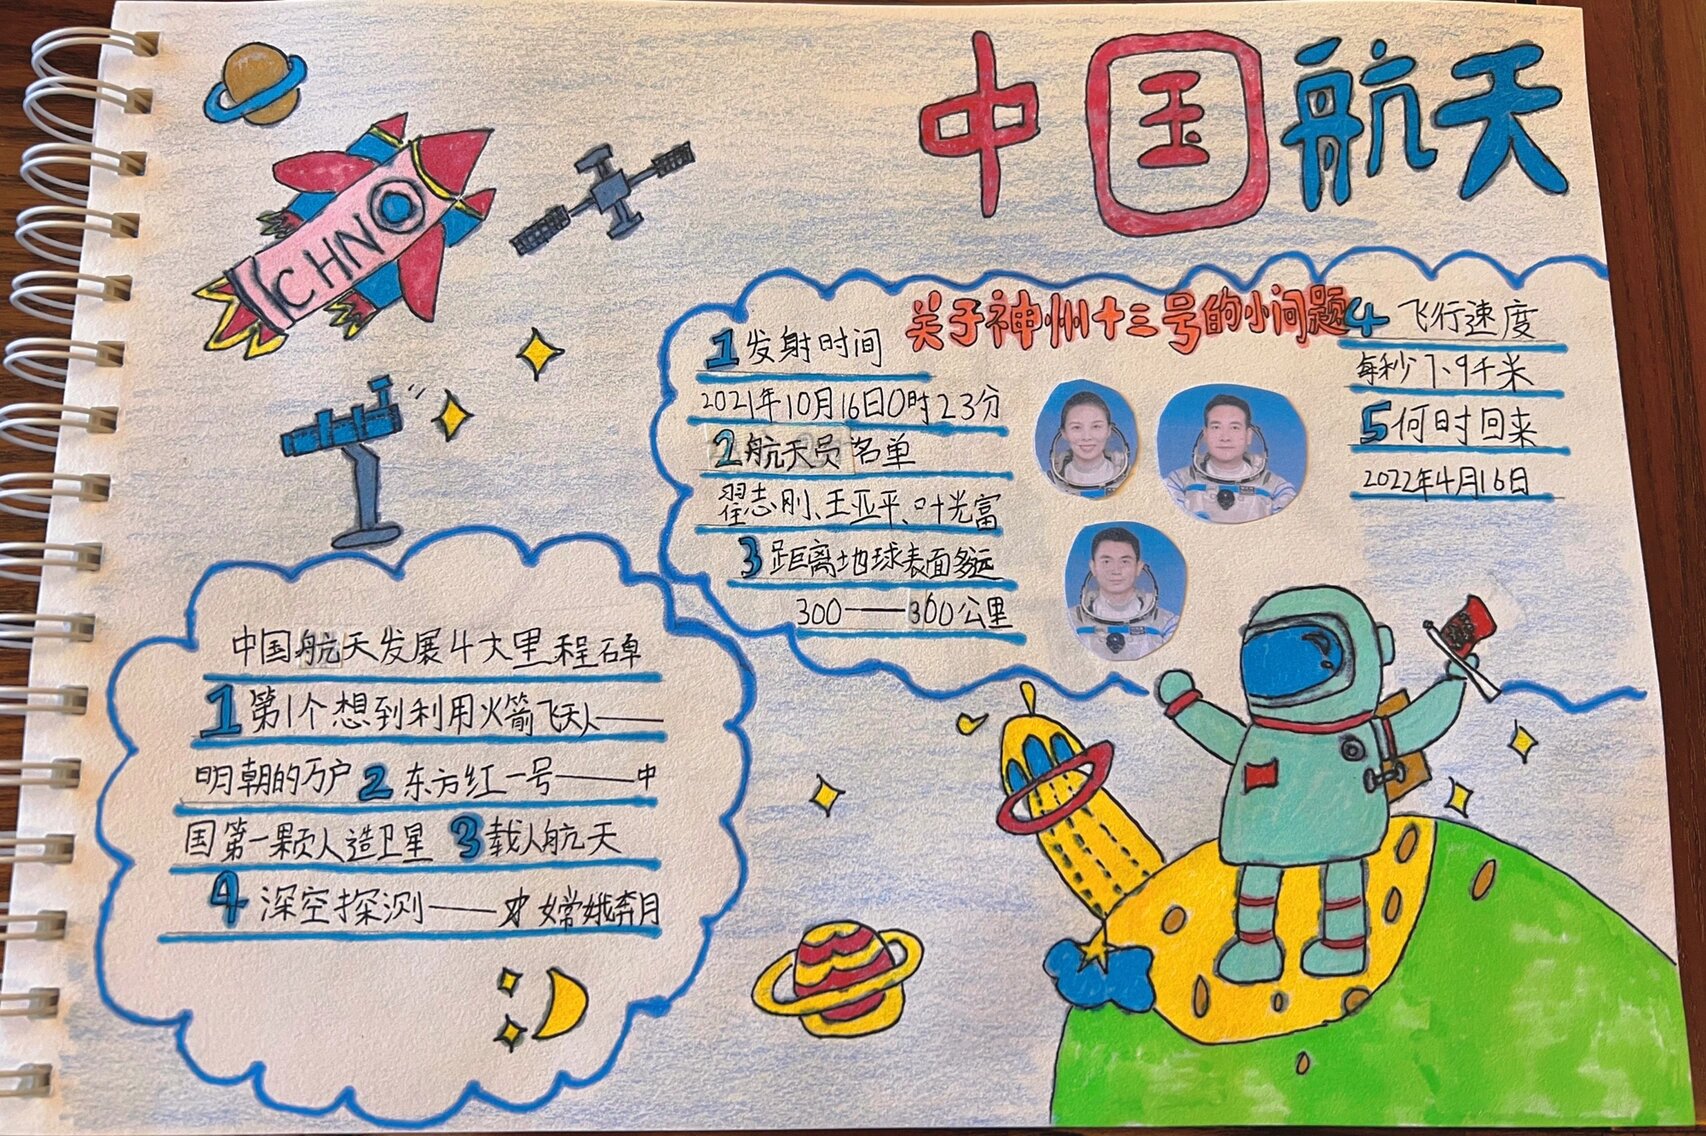 中国航天
CHNO
关于神州十三号的小问题
1发射时间
2021年10月16日0时23分
2航天员名单
翟志刚、王亚平、叶光富
3距离地球表面多远
300——300公里
4飞行速度
每秒7、9千米
5何时回来
2022年4月16日
中国航天发展4大里程碑
1第1个想到利用火箭飞天人——
明朝的万户2东方红一号——中
国第一颗人造卫星3载人航天
4深空探测——嫦娥奔月